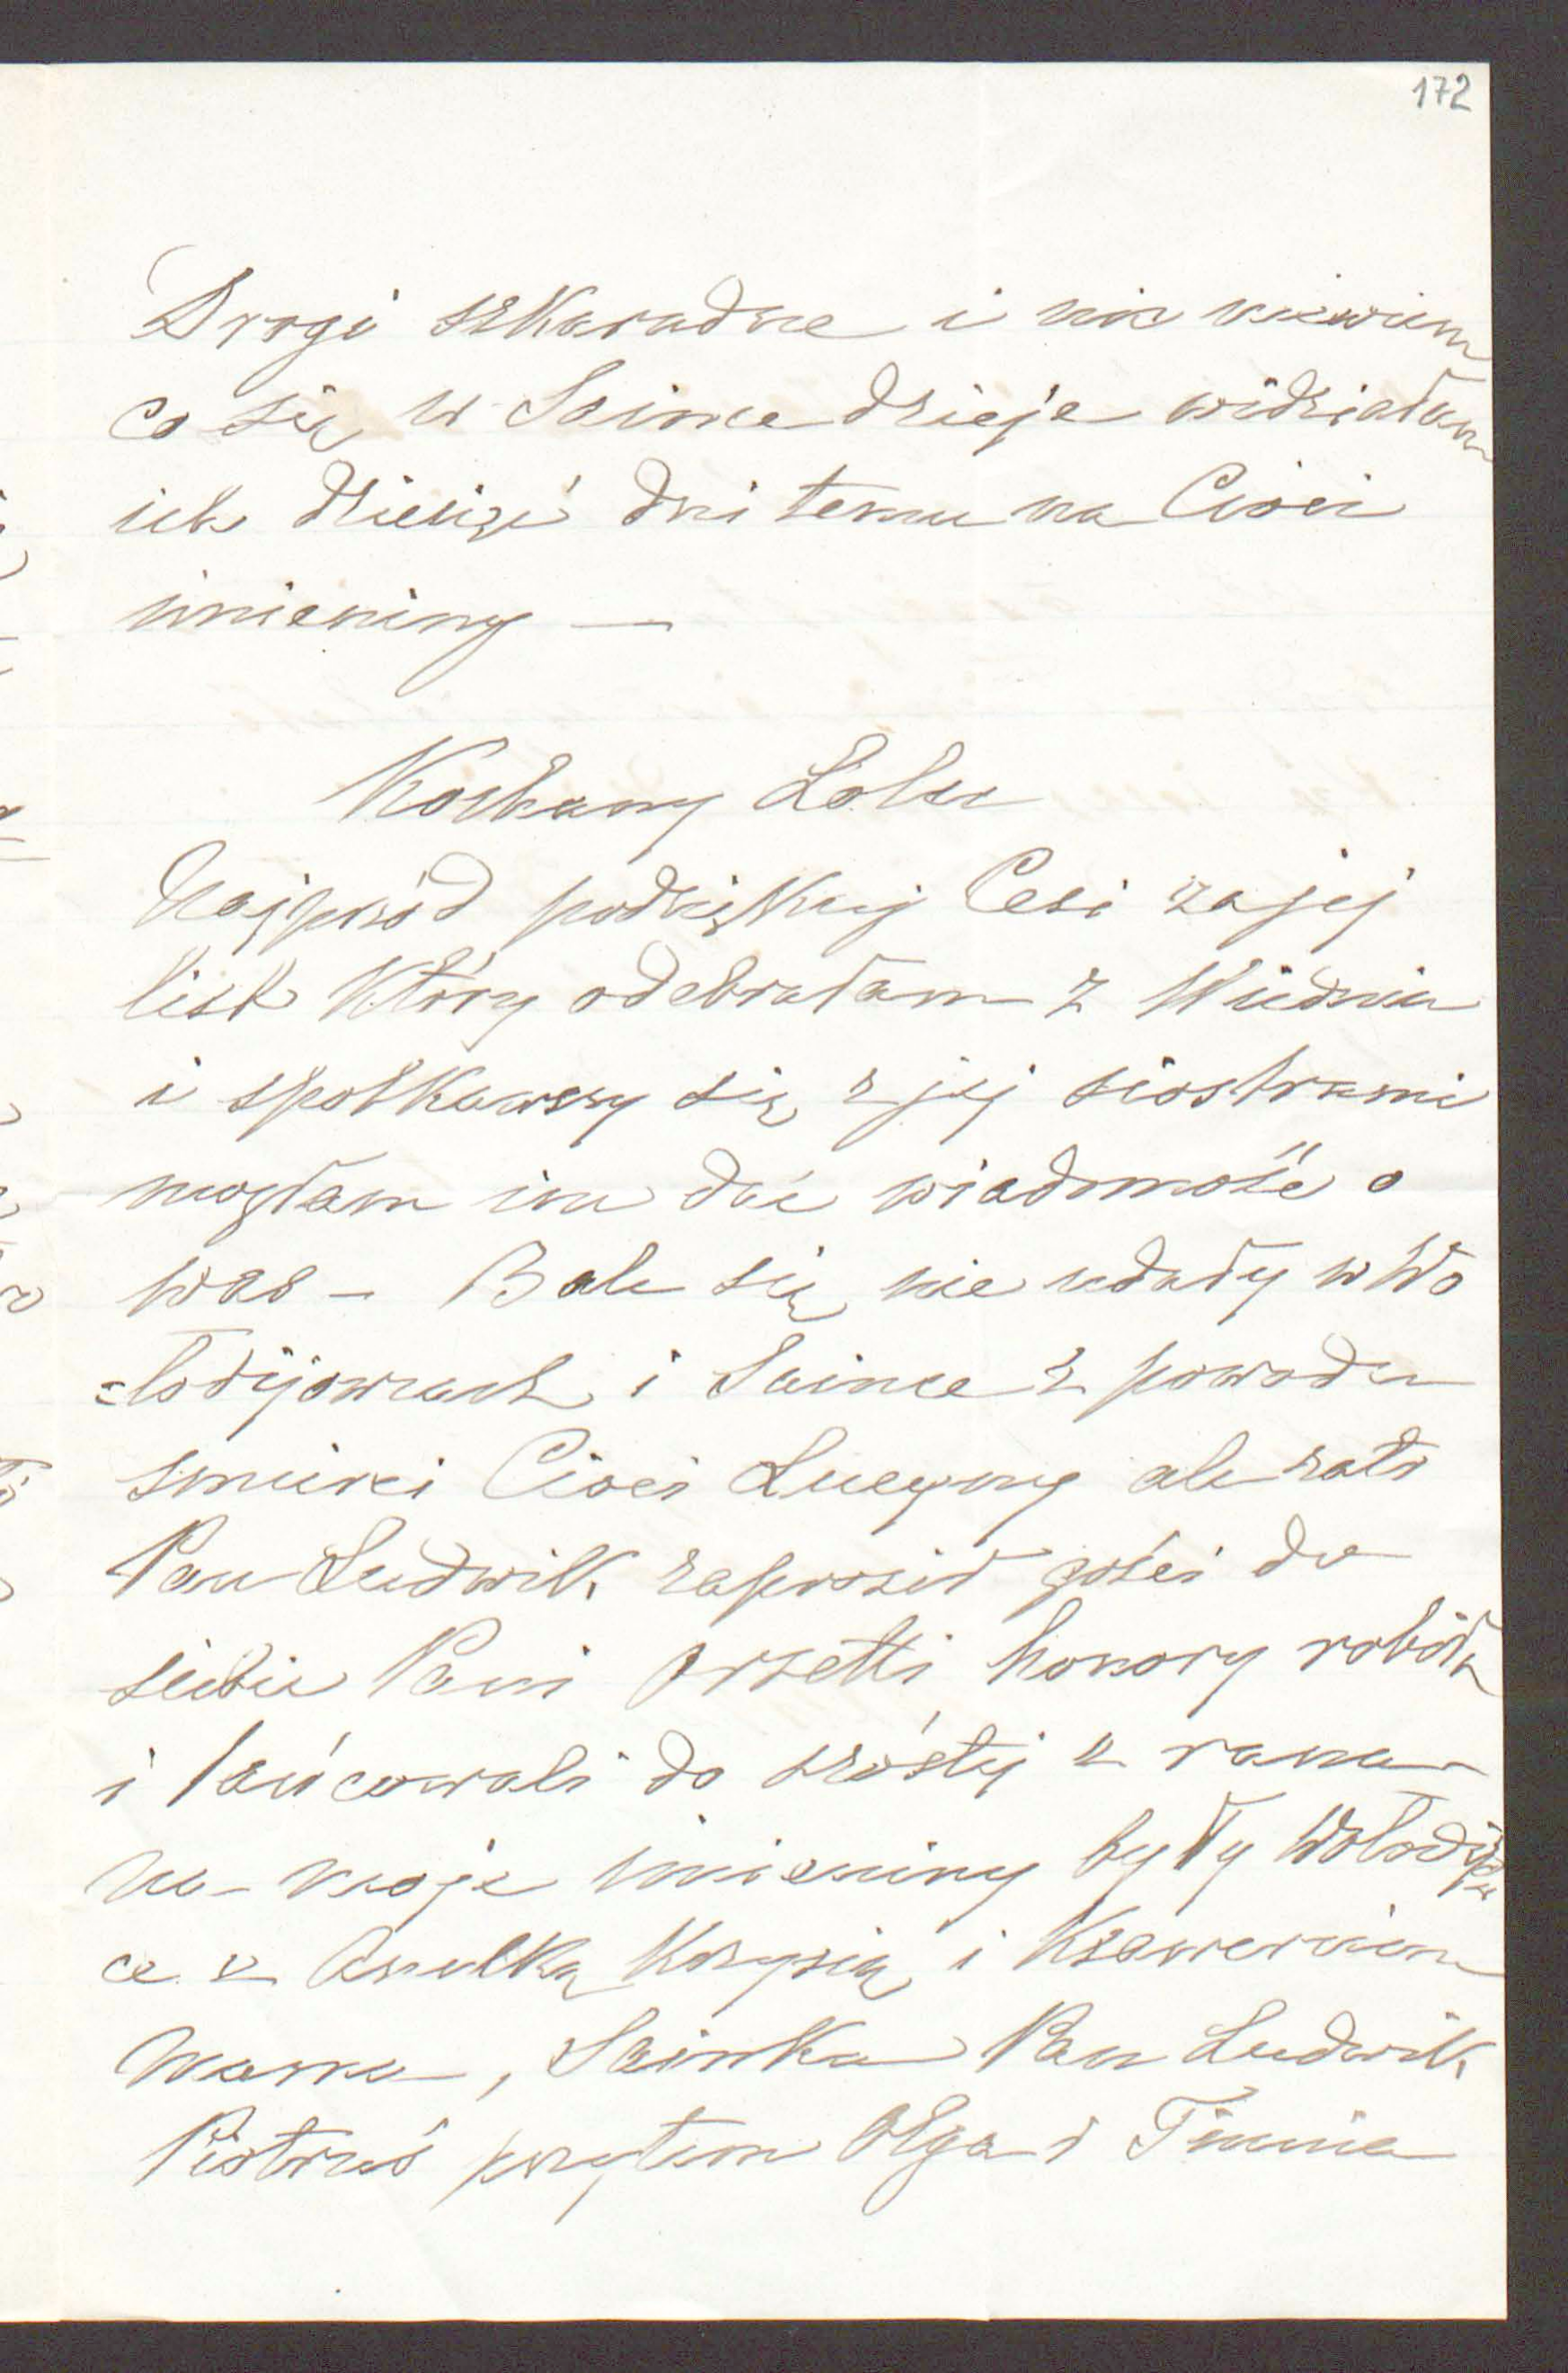 172
Drogi szkaradne i nic niewiem
co się w Saince dzieje widziałam
ich dziesięć dni temu na Cioci
imieniny —
Kochany Lolu
Najprzód podziękuj Cesi za jej
list który odebrałam z Wiednia
i spotkawszy się z jej siostrami
mogłam im dać wiadomość o
was – Bale się nie udały w Wo
=łodijowcach i Saince z powodu
śmierci Cioci Lucyny ale zato
Pan Ludwik zaprosił gości do
siebie Pani Orsetti honory robiła
i tańcowali do szóstej z rana
na moje imieniny były Wołodijow
ce z Anulką Krzysią i Ksawerciem
Mama, Sainka Pan Ludwik
Piotruś przytem Olga i Timcia